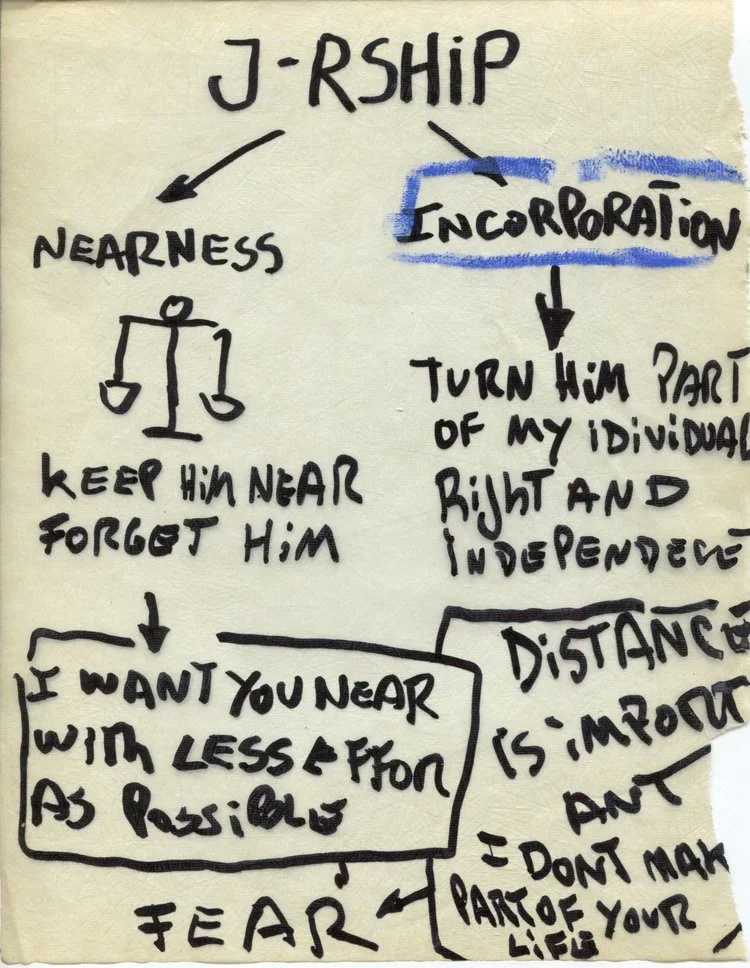 J-RSHiP
NEARNESS
INCORPORATION
KEEP HiM NEAR
FORGET HiM
TURN HiM PART
OF MY iDiViDUAL
RighT AND
INDEPENDECE
I WANT YOU NEAR
WiTh LESS EFFOR
AS POSSiBLE
DiSTANCE
iS iMPORT
ANT
I DONT MAK
PART OF YOUR
LiFE
FEAR